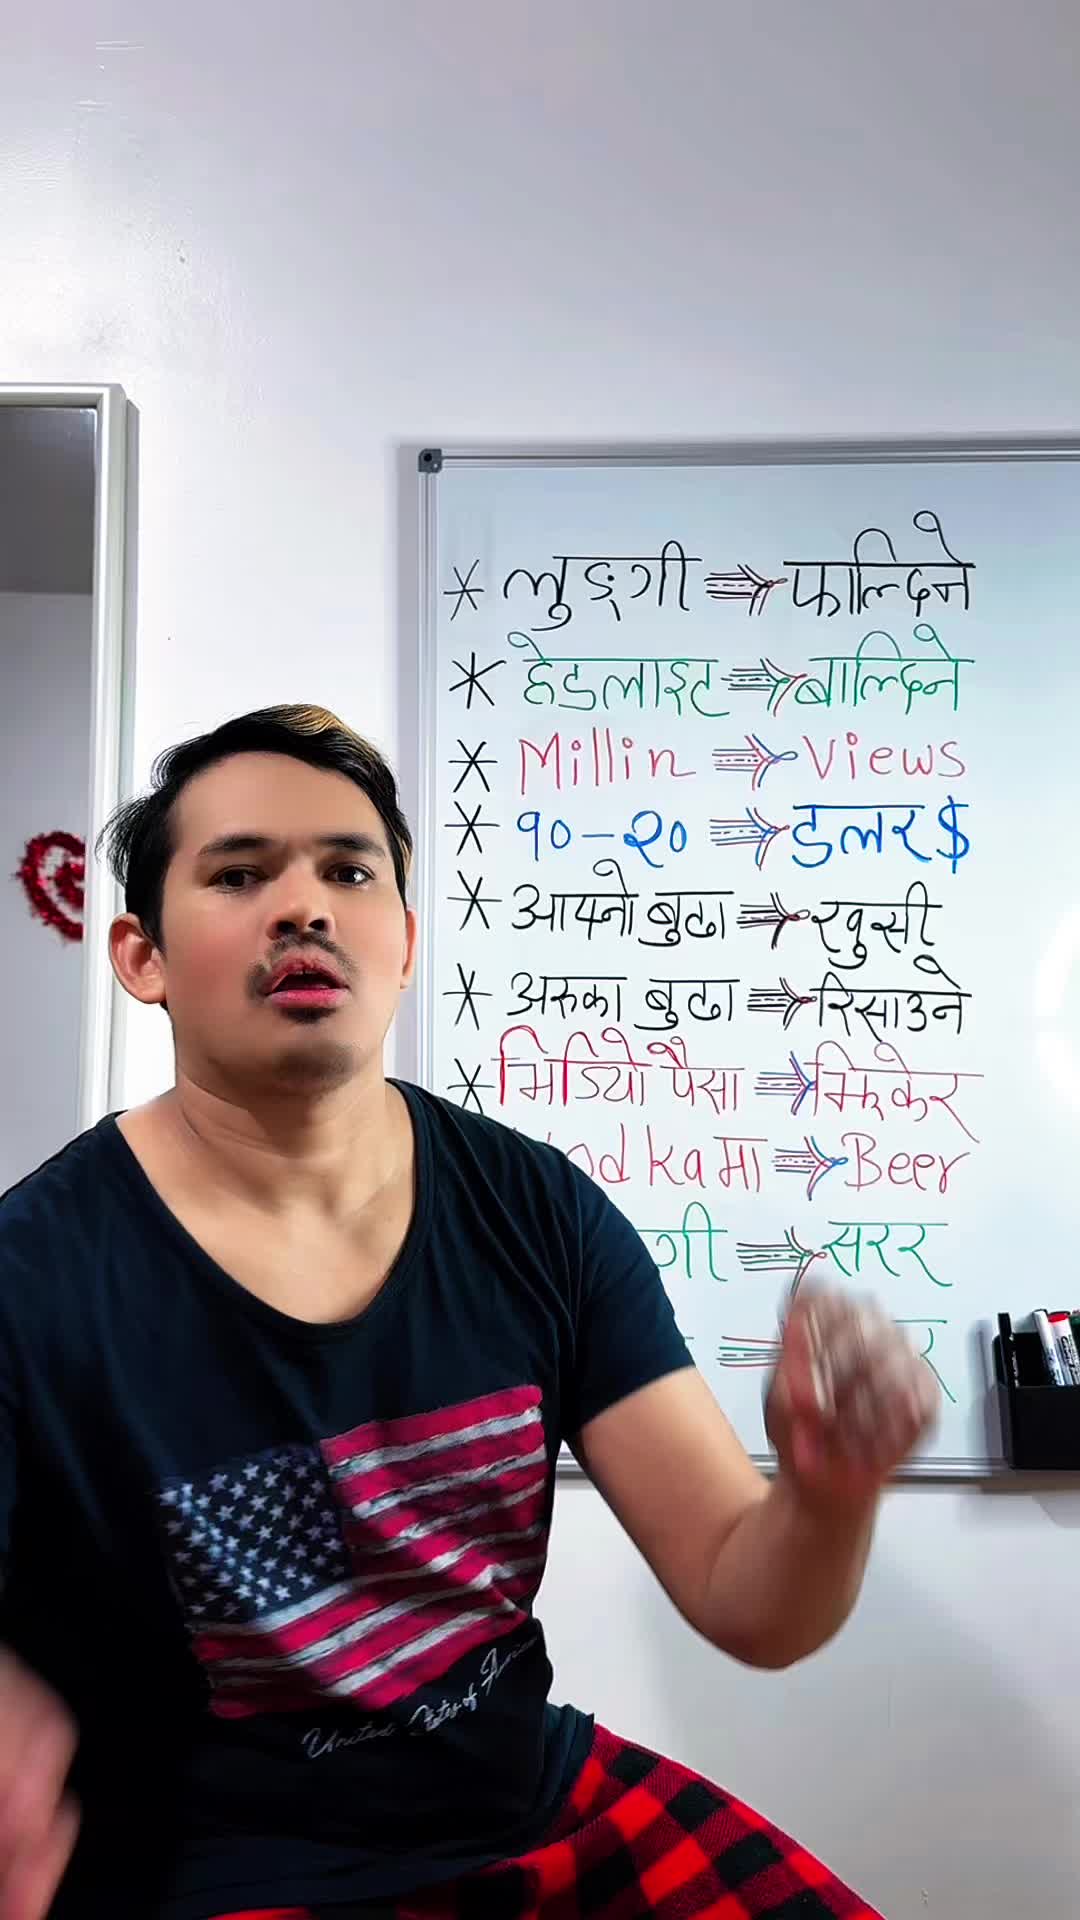 * लुङ्गी ⇒ फाल्दिने
* हेडलाइट ⇒ बाल्दिने
* Millin ⇒ Views
* १०-२० ⇒ डलर $
* आफ्नो बुढा ⇒ खुसी
* अरुका बुढा ⇒ रिसाउने
* भिडियो पैसा ⇒ झिकेर
मा ⇒ Beer
⇒ सरर
United States of